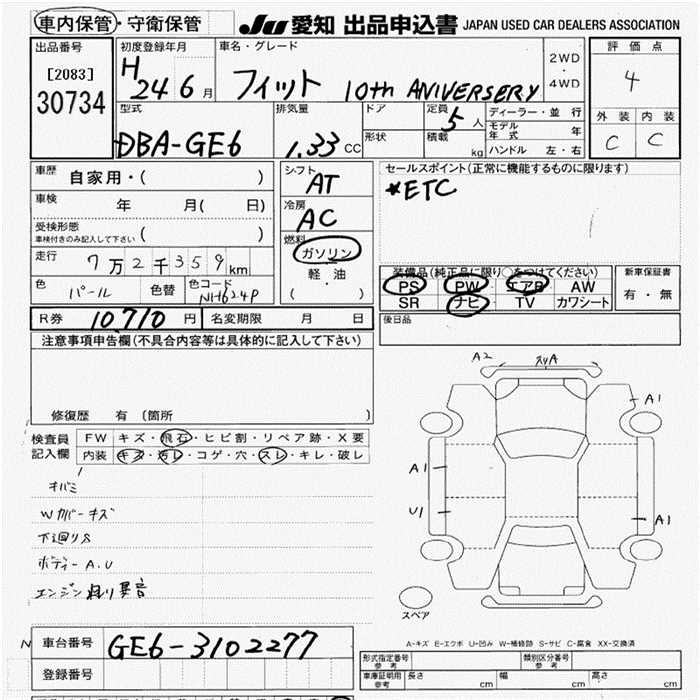 車内保管・守衛保管 JU 愛知 出品申込書 JAPAN USED CAR DEALERS ASSOCIATION
出品番号 初度登録年月 車名・グレード 評価点
[2083] H 24 6 月 フィット 10th ANIVERSERY 2WD・4WD 4
30734
型式 排気量 ドア 定員 5 人 ディーラー・並行 外装 内装
DBA-GE6 1.33 CC 形状 積載 kg モデル年式 年 C C
ハンドル 左・右
車歴 自家用・( ) シフト AT セールスポイント(正常に機能するものに限ります)
車検 年 月( 日) 冷房 AC *ETC
受検形態 ( )
車検付きのみ記入して下さい
燃料 ガソリン
走行 7万2千359km 軽油 装備品(純正品に限り○をつけてください) 新車保証書
色 パール 色替 色コード NH624P ( ・ ) PS PW エアB AW 有・無
SR ナビ TV カワシート
R券 10,710 円 名変期限 月 日 後日品
注意事項申告欄(不具合内容等は具体的に記入して下さい)
A2 スリA
A1
修復歴 有 〔箇所 〕
検査員 FW キズ・飛石・ヒビ割・リペア跡・X要
記入欄 内装 キズ・汚レ・コゲ・穴・スレ・キレ・破レ
A1
Wカバーキズ
U1 A1
下廻りS
ボディーA.U
スペア
N 車台番号 GE6-3102277
A-キズ E-エクボ U-凹み W-補修跡 S-サビ C-腐食 XX-交換済
登録番号
形式指定番号 参考 類別区分番号 参考
車庫証明用 参考 長さ cm 幅 cm 高さ cm